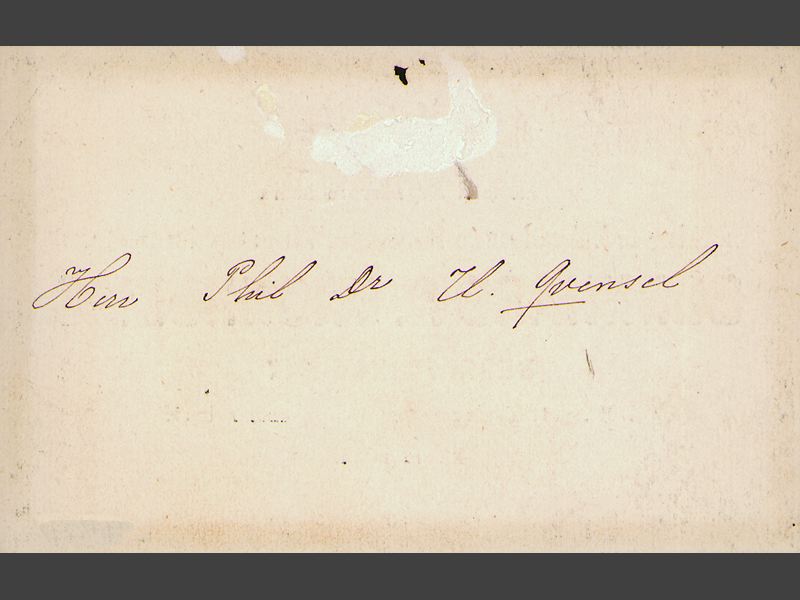 Herr Phil Dr U. Qvensel